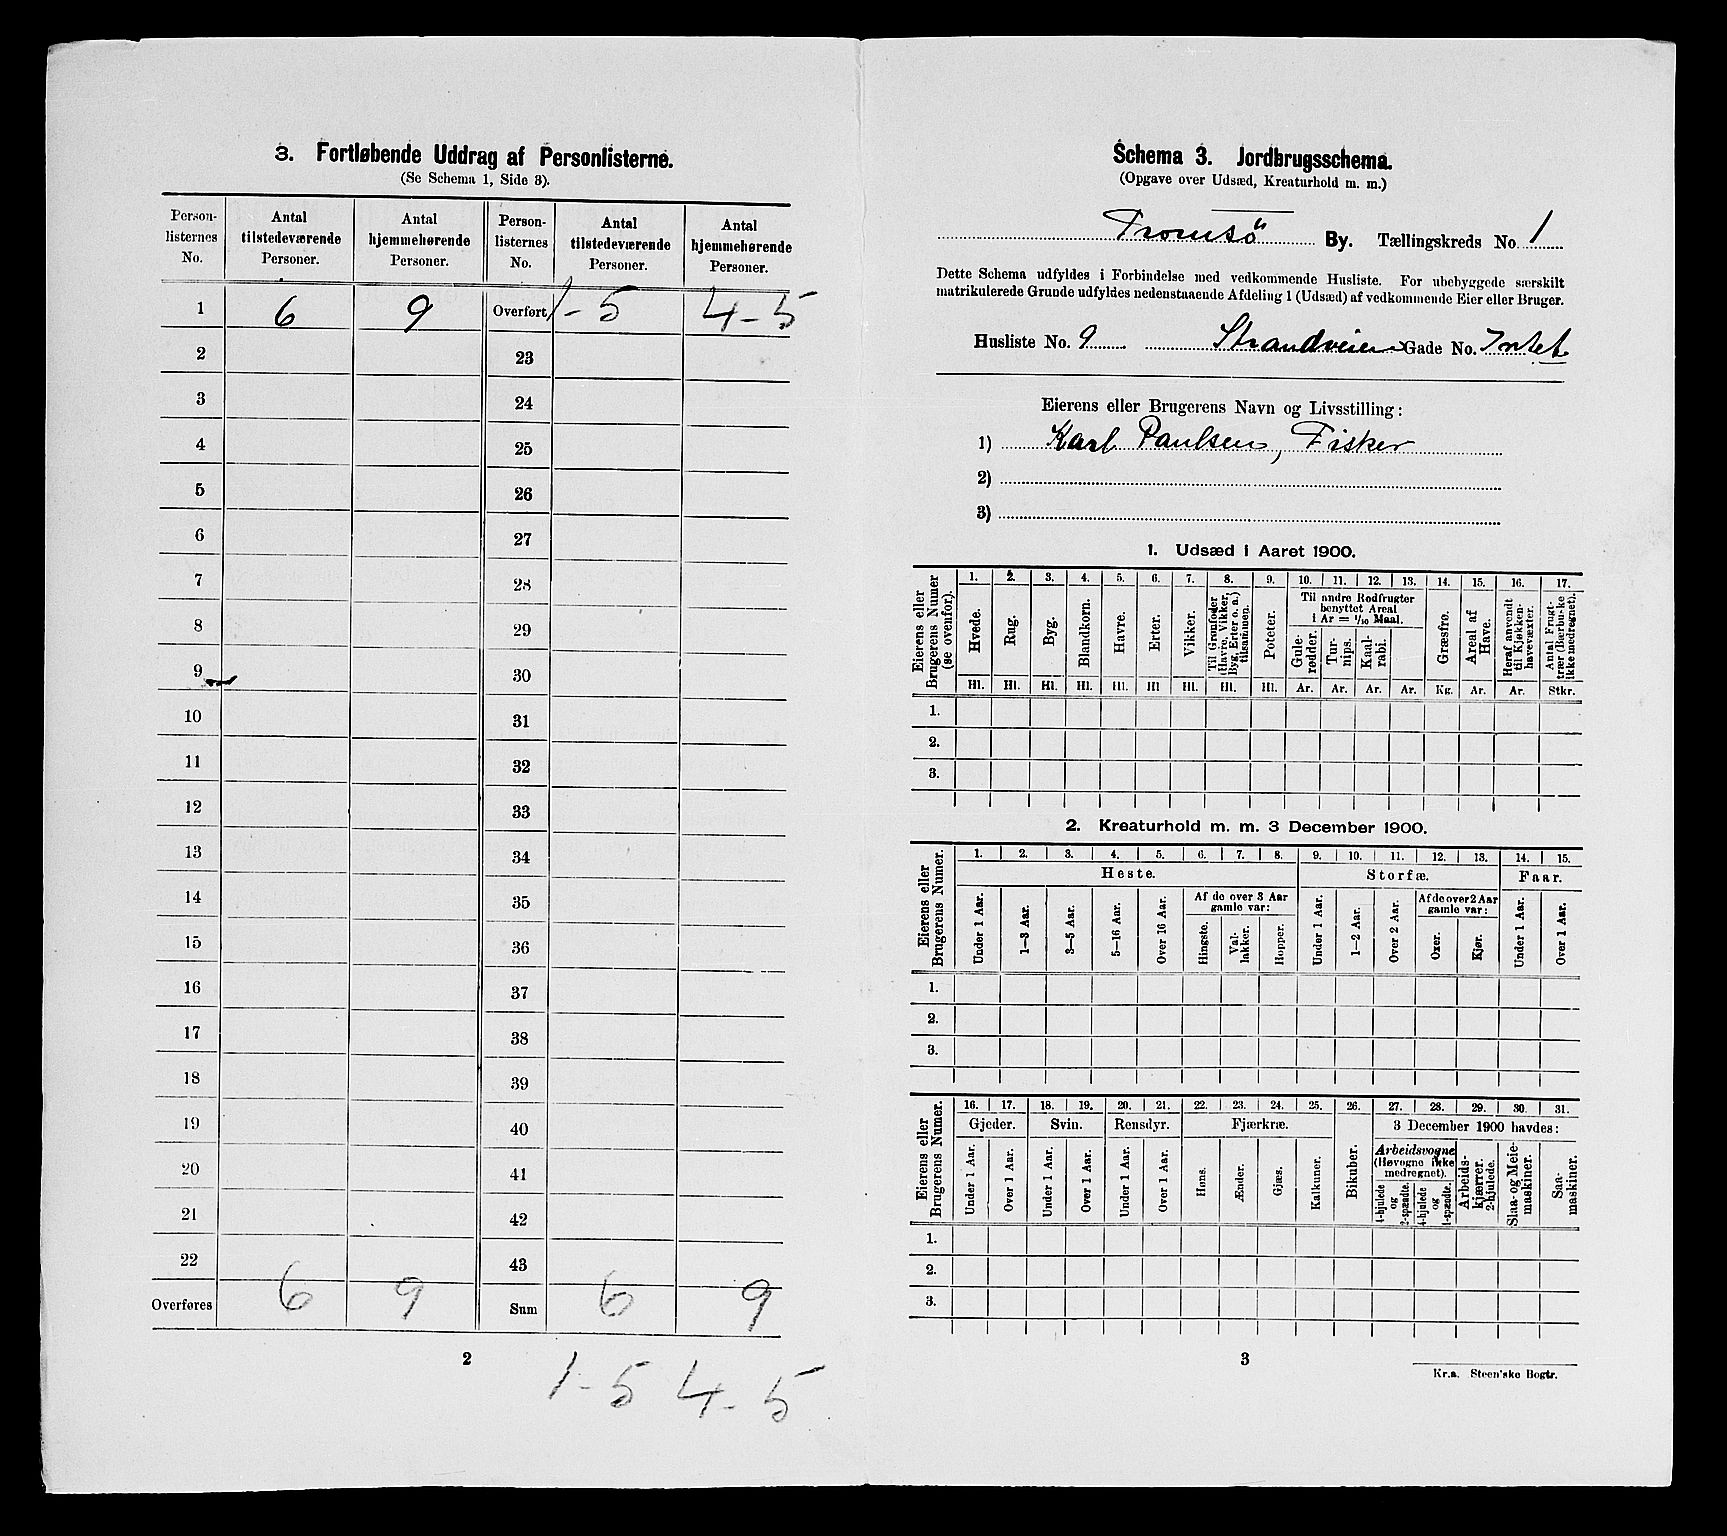 3. Fortløbende Uddrag af Personlisterne.
(Se Schema 1, Side 3).
Person-listernes No. | Antal tilstedeværende Personer. | Antal hjemmehørende Personer. | Person-listernes No. | Antal tilstedeværende Personer. | Antal hjemmehørende Personer.
1 | 6 | 9 | Overført | 1-5 | 4-5
2 | 23
3 | 24
4 | 25
5 | 26
6 | 27
7 | 28
8 | 29
9 | 30
10 | 31
11 | 32
12 | 33
13 | 34
14 | 35
15 | 36
16 | 37
17 | 38
18 | 39
19 | 40
20 | 41
21 | 42
22 | 43
Overføres | 6 | 9 | Sum | 6 | 9
2
1-5 4-5
Schema 3. Jordbrugsschema.
(Opgave over Udsæd, Kreaturhold m. m.)
Tromsö By. Tællingskreds No. 1
Dette Schema udfyldes i Forbindelse med vedkommende Husliste. For ubebyggede særskilt
matrikulerede Grunde udfyldes nedenstaaende Afdeling 1 (Udsæd) af vedkommende Eier eller Bruger.
Husliste No. 9 Strandveien Gade No. Intet
Eierens eller Brugerens Navn og Livsstilling:
1) Karl Paulsen, Fisker
2)
3)
1. Udsæd i Aaret 1900.
Eierens eller Brugerens Numer (se ovenfor).
1. | 2. | 3. | 4. | 5. | 6. | 7. | 8. | 9. | 10. | 11. | 12. | 13. | 14. | 15. | 16. | 17.
Til andre Rodfrugter benyttet Areal i Ar = 1/10 Maal.
Hvede. | Rug. | Byg. | Blandkorn. | Havre. | Erter. | Vikker. | Til Grønfoder (Havre, Vikker, Byg, Erter o. a.) tilsammen. | Poteter. | Gule-rødder. | Tur-nips. | Kaal-rabi. | Græsfrø. | Areal af Have. | Heraf anvendt til Kjøkken-havevæxter. | Antal Frugt-trær (Bærbuske ikke medregnet).
Hl. | Hl. | Hl. | Hl. | Hl. | Hl | Hl. | Hl. | Hl. | Ar. | Ar. | Ar. | Ar. | Kg. | Ar. | Ar. | Stkr.
1.
2.
3.
2. Kreaturhold m. m. 3 December 1900.
Eierens eller Brugerens Numer.
1. | 2. | 3. | 4. | 5. | 6. | 7. | 8. | 9. | 10. | 11. | 12. | 13. | 14. | 15.
Heste. | Storfæ. | Faar.
Af de over 3 Aar gamle var: | Af de over 2 Aar gamle var:
Under 1 Aar. | 1–3 Aar. | 3–5 Aar. | 5–16 Aar. | Over 16 Aar. | Hingste. | Val-lakker. | Hopper. | Under 1 Aar. | 1–2 Aar. | Over 2 Aar. | Oxer. | Kjør. | Under 1 Aar. | Over 1 Aar.
1.
2.
3.
Eierens eller Brugerens Numer.
16. | 17. | 18. | 19. | 20. | 21. | 22. | 23. | 24. | 25. | 26. | 27. | 28. | 29. | 30. | 31.
Gjeder. | Svin. | Rensdyr. | Fjærkræ. | 3 December 1900 havdes:
Arbeidsvogne (Høvogne ikke medregnet).
Under 1 Aar. | Over 1 Aar. | Under 1 Aar. | Over 1 Aar. | Under 1 Aar. | Over 1 Aar. | Høns. | Ænder. | Gjæs. | Kalkuner. | Bikuber. | 4-hjulede og 2-spændte. | 4-hjulede og 1-spændte. | Arbeids-kjærrer. 2-hjulede. | Slaa- og Meie-maskiner. | Saa-maskiner.
1.
2.
3.
3
Kr.a. Steen'ske Bogtr.